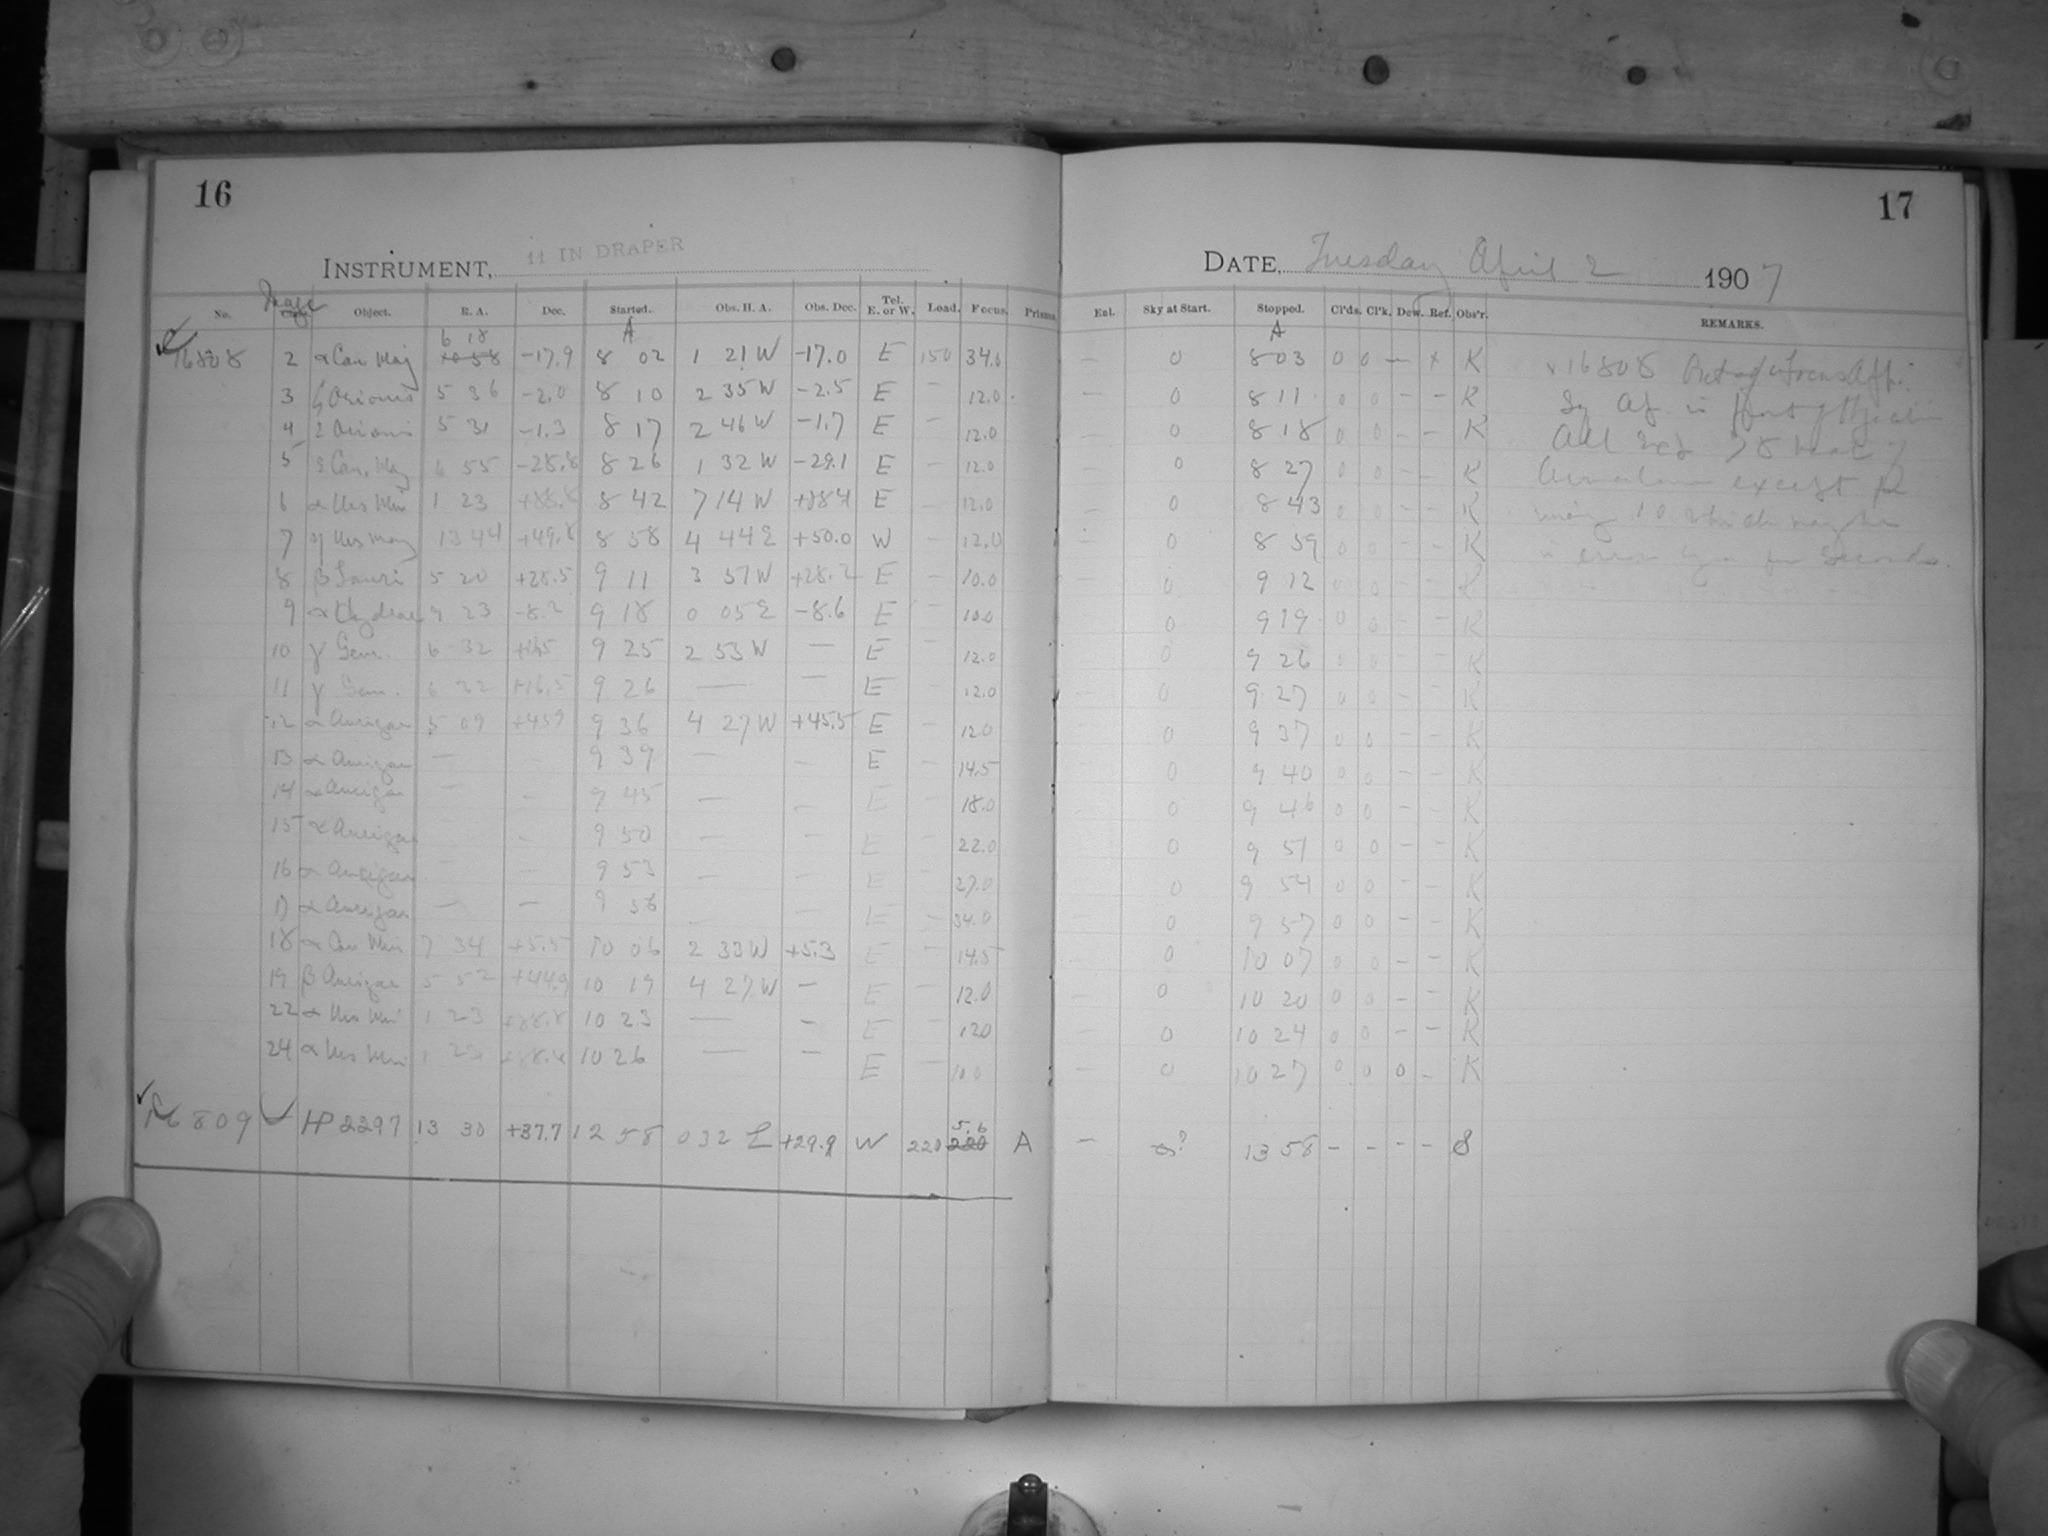 16
17
INSTRUMENT, 11 IN DRAPER
DATE, Tuesday April 2 1907
No. Image Object. R. A. Dec. Started. Obs. H. A. Obs. Dec. Tel. E. or W. Load. Focus. Prisms. Enl. Sky at Start. Stopped. Cl'ds. Cl'k. Dew. Ref. Obs'r. REMARKS.
6 18 A A
16808 2 α Can Maj 10 58 -17.9 8 02 1 21 W -17.0 E 150 34.0 — 0 8 03 0 0 — x K x 16808 Out of Focus
3 ζ Orionis 5 36 -2.0 8 10 2 35 W -2.5 E — 12.0 — 0 8 11 0 0 – – K
4 Orionis 5 31 -1.3 8 17 2 46 W -1.7 E — 12.0 — 0 8 18 0 0 – – K All
5 Can. Maj 6 55 -28.8 8 26 1 32 W -29.1 E — 12.0 — 0 8 27 0 0 – – K except
6 α Urs Min 1 23 +88.8 8 42 7 14 W E — 12.0 — 0 8 43 0 0 – – K 10 which may be
7 η Urs Maj 13 44 +49.8 8 58 4 44 E +50.0 W — 12.0 — 0 8 59 0 0 – – K in error by a few seconds.
8 β Tauri 5 20 +28.5 9 11 3 57 W +28.2 E — 10.0 0 9 12 0 0 – – K
9 α Hydrae 9 23 -8.2 9 18 0 05 E -8.6 E — 10.0 0 9 19 0 0 – – K
10 γ Gem. 6 32 9 25 2 53 W — E — 12.0 0 9 26 0 0 – – K
11 γ Gem. 6 32 +16.5 9 26 — — E — 12.0 — 0 9 27 0 0 – – K
12 α Aurigae 5 09 +45.9 9 36 4 27 W +45.5 E — 12.0 0 9 37 0 0 – – K
13 α Aurigae — — 9 39 — — E — 14.5 0 9 40 0 0 – – K
14 α Aurigae — — 9 45 — — E — 18.0 0 9 46 0 0 – – K
15 α Aurigae — 9 50 — — E — 22.0 0 9 51 0 0 – – K
16 α Aurigae — — 9 53 E — 27.0 0 9 54 0 0 – – K
17 α Aurigae — — 9 56 — — E — 34.0 0 9 57 0 0 – – K
18 α Can Min 7 34 +5.5 10 06 2 33 W +5.3 E — 14.5 0 10 07 0 0 – – K
19 β Aurigae 5 52 +44.9 10 19 4 27 W — E — 12.0 — 0 10 20 0 0 – – K
22 α Urs Min 1 23 +88.8 10 23 — — E — 12.0 — 0 10 24 0 0 – – K
24 α Urs Min 1 23 10 26 — — E 10.0 — 0 10 27 0 0 0 – K
5.6
16809 HP 2297 13 30 +37.7 12 58 0 32 E +29.9 W 220 220 A — 0? 13 58 – – – – S